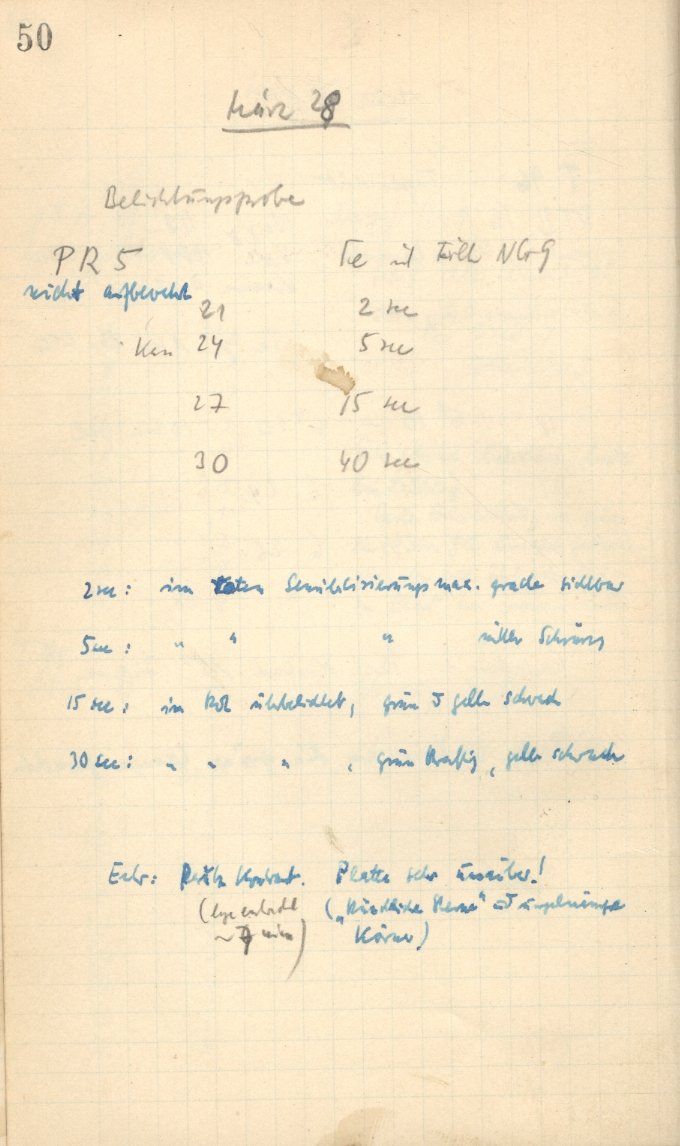 50
März 28
Belichtungsprobe
PR 5 Fe mit Filter
nicht aufbewahrt
21 2 sec
24 5 sec
27 15 sec
30 40 sec
2 sec: im roten Sensibilisierungsmax. grade sichtbar
5 sec: " " " Schwärz
15 sec: im Rot überbelichtet, grün u gelb schwach
30 sec: " " " , grün kräftig, gelb schwach
Platte sehr unsauber!
~ 7 min) Körner)